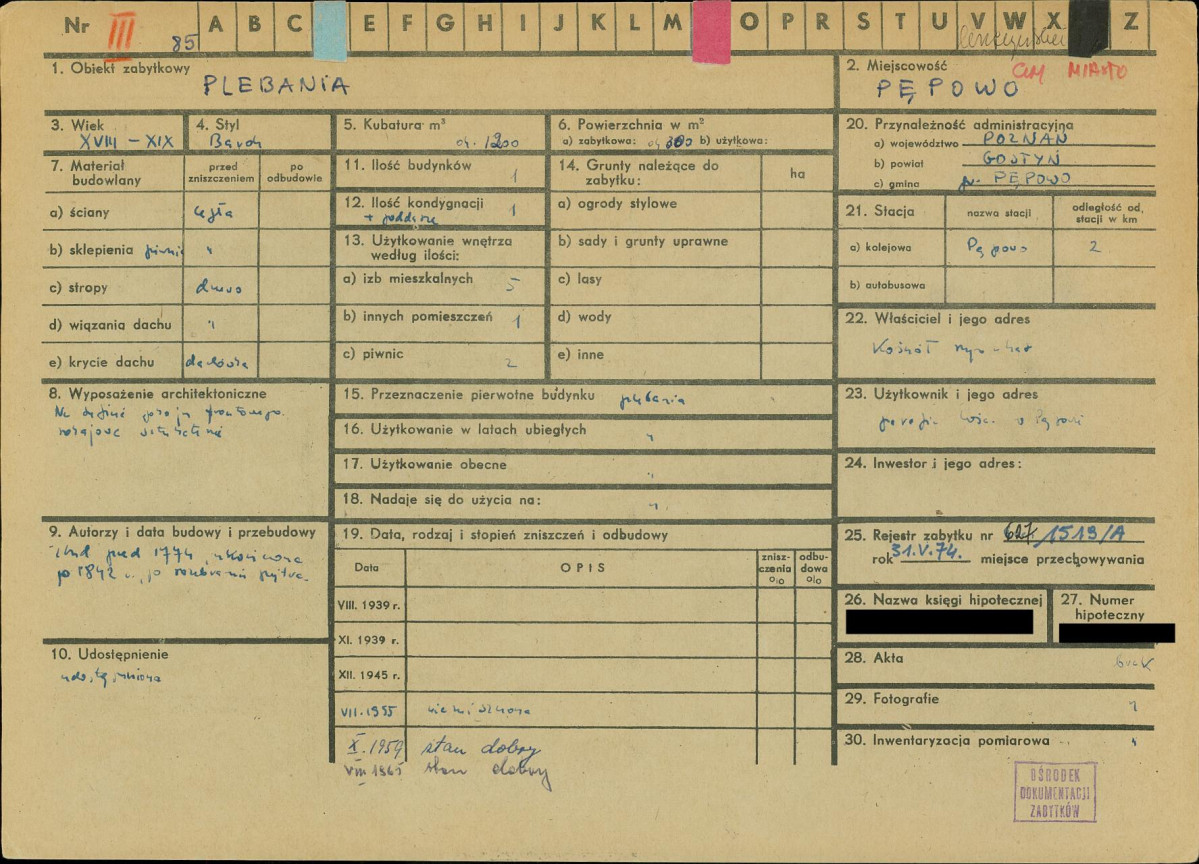 Nr III 85 A B C E F G H I J K L M O P R S T U V W X Z
1. Obiekt zabytkowy
PLEBANIA
2. Miejscowość
MIASTO
PĘPOWO
3. Wiek
XVIII – XIX
4. Styl
Barok
5. Kubatura m³
ok. 1200
6. Powierzchnia w m²
a) zabytkowa: b) użytkowa:
20. Przynależność administracyjna
a) województwo POZNAŃ
b) powiat GOSTYŃ
c) gmina PĘPOWO
7. Materiał budowlany
przed zniszczeniem
po odbudowie
a) ściany cegła
b) sklepienia piwnic "
c) stropy drewno
d) wiązania dachu "
e) krycie dachu dachówka
11. Ilość budynków 1
12. Ilość kondygnacji 1
+ poddasze
13. Użytkowanie wnętrza
według ilości:
a) izb mieszkalnych 5
b) innych pomieszczeń 1
c) piwnic 2
14. Grunty należące do
zabytku:
ha
a) ogrody stylowe
b) sady i grunty uprawne
c) lasy
d) wody
e) inne
21. Stacja
nazwa stacji
odległość od
stacji w km
a) kolejowa Pępowo 2
b) autobusowa
22. Właściciel i jego adres
Kościół
8. Wyposażenie architektoniczne
15. Przeznaczenie pierwotne budynku plebania
16. Użytkowanie w latach ubiegłych "
17. Użytkowanie obecne "
18. Nadaje się do użycia na: "
23. Użytkownik i jego adres
24. Inwestor i jego adres:
9. Autorzy i data budowy i przebudowy
przed 1774
po 1842 r. po rozebraniu piętra.
19. Data, rodzaj i stopień zniszczeń i odbudowy
Data
OPIS
znisz-
czenia
%
odbu-
dowa
%
VIII. 1939 r.
XI. 1939 r.
XII. 1945 r.
VII. 1955 niezniszczona
X. 1959 stan dobry
VIII 1965 stan dobry
25. Rejestr zabytku nr 627 1519/A
rok 31.V.74. miejsce przechowywania
26. Nazwa księgi hipotecznej
27. Numer
hipoteczny
10. Udostępnienie
udostępniona
28. Akta brak
29. Fotografie "
30. Inwentaryzacja pomiarowa "
OŚRODEK
DOKUMENTACJI
ZABYTKÓW